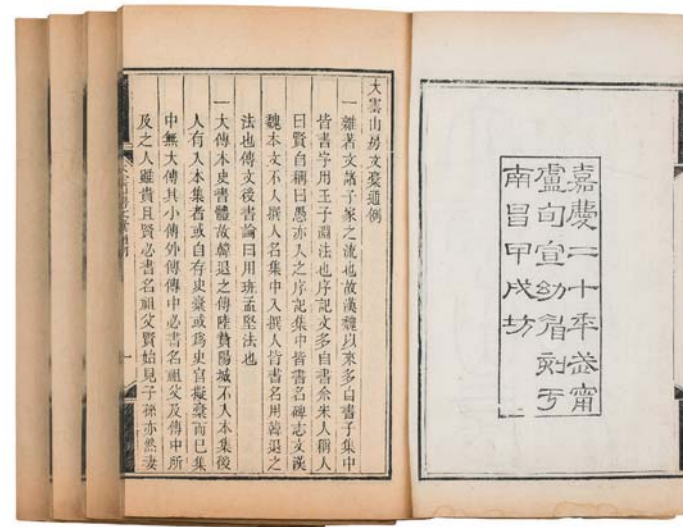 嘉慶二十年武甯
盧旬宣幼眉刻于
南昌甲戌坊
大雲山房文稾通例
一雜著文諸子家之流也故漢魏以來多自書子集中
皆書字用王子淵法也序記文多自書余朱人稱人
曰賢自稱曰愚亦入之序記集中皆書名碑志文漢
魏本文不入撰人名集中入撰人皆書名用韓退之
法也傳文後書論曰用班孟堅法也
一大傳本史書體故韓退之傳陸贄陽城不入本集後
人有入本集者或自存史稾或爲史官擬稾而已集
中無大傳其小傳外傳傳中必書名祖父及傳中所
及之人雖貴且賢必書名祖父賢始見子孫亦然妻